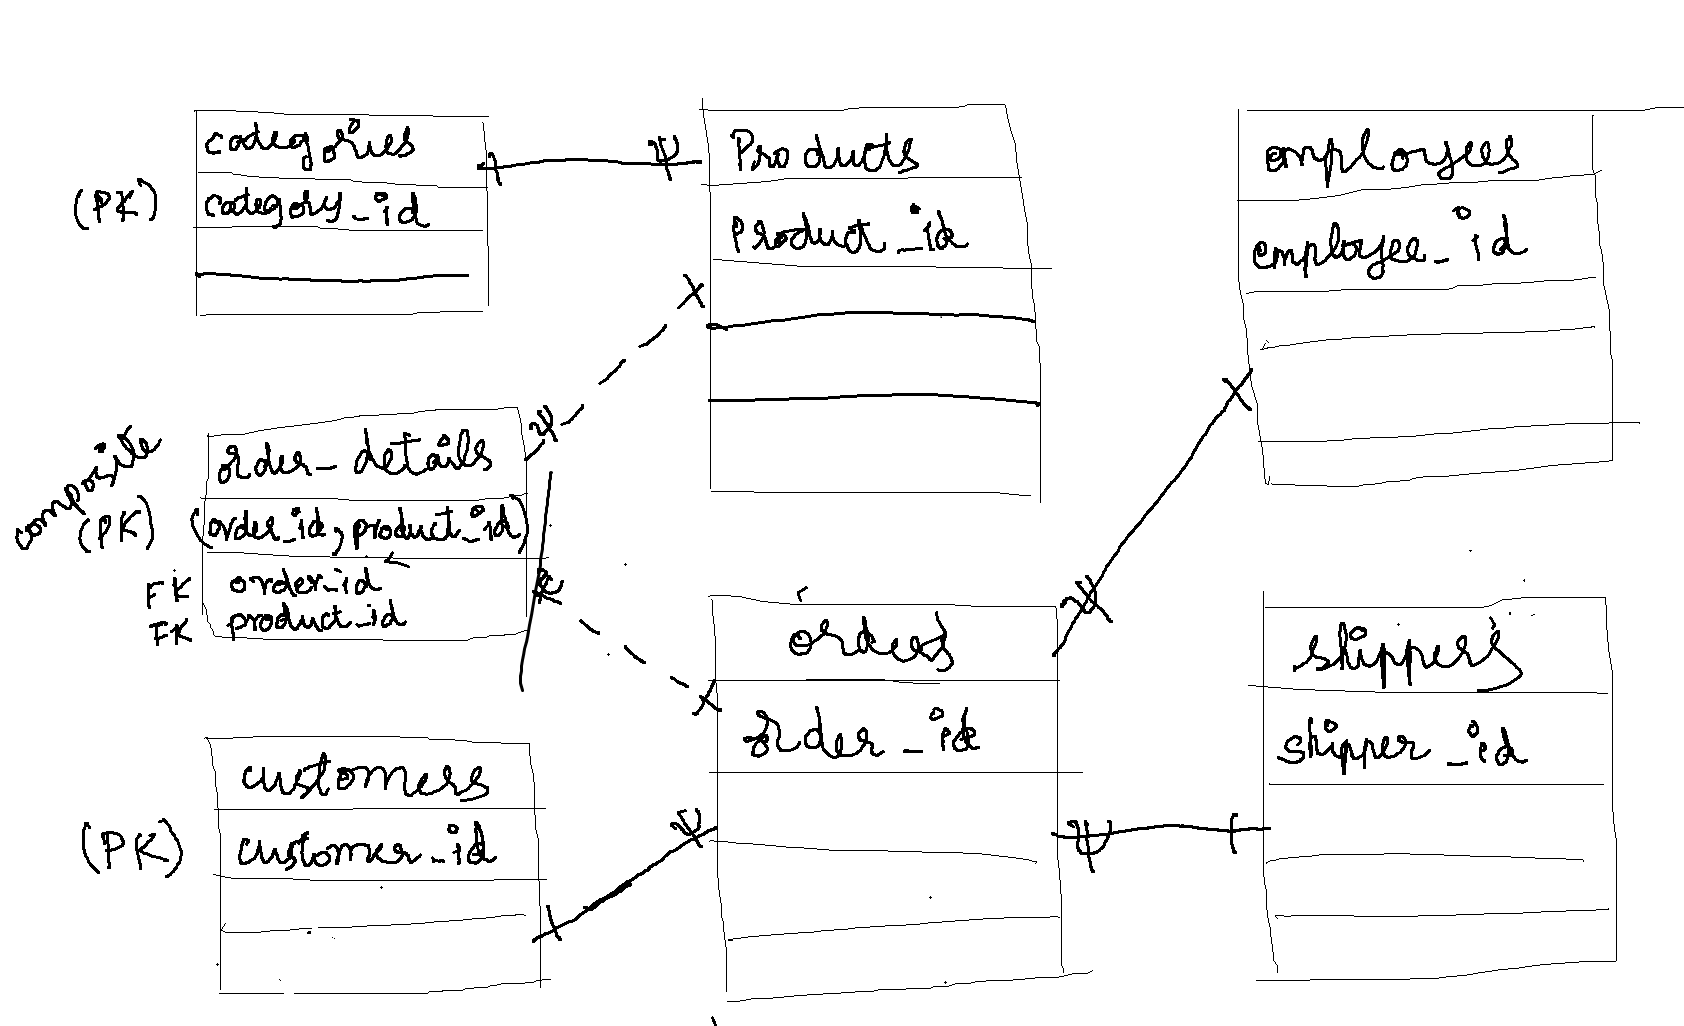 categories
(PK) category_id
Products
Product_id
employees
employee_id
composite
order_details
(PK) (order_id, product_id)
FK order_id
FK product_id
orders
order_id
shippers
shipper_id
customers
(PK) customer_id